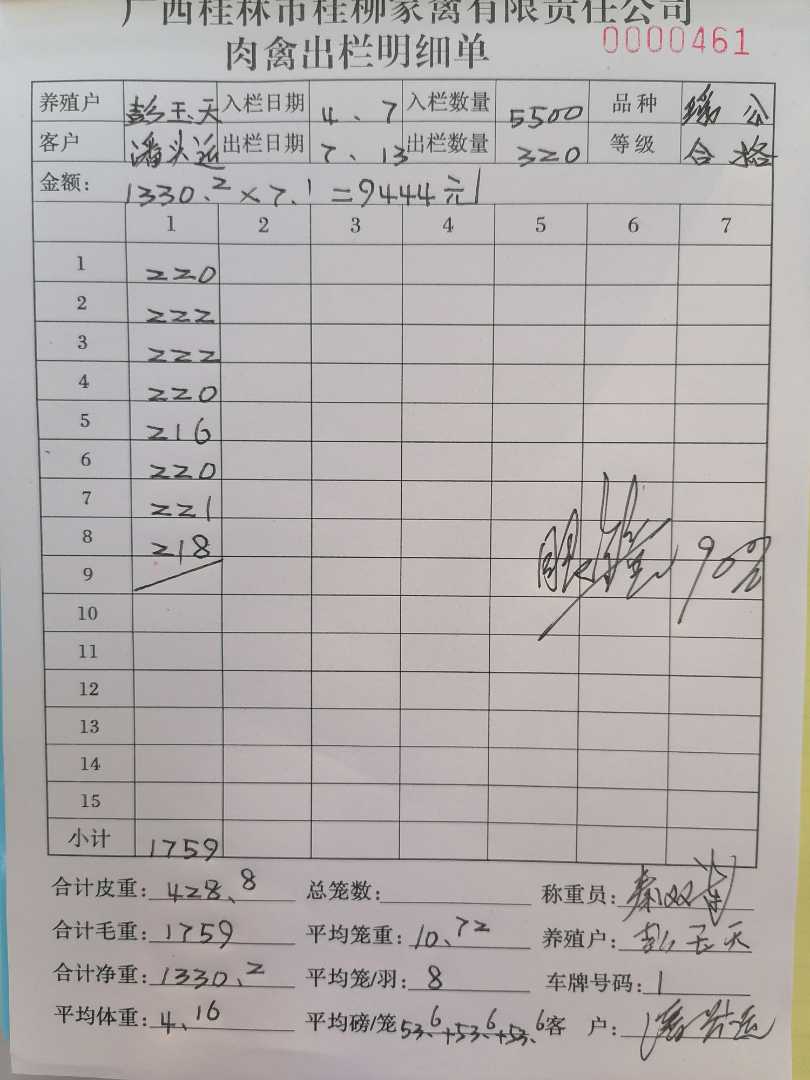 广西桂林市桂柳家禽有限责任公司
肉禽出栏明细单 0000461
养殖户 彭玉天 入栏日期 4、7 入栏数量 5500 品种 公
客户 潘 运 出栏日期 7、13 出栏数量 320 等级 合格
金额: 1330.2×7.1=9444元
1 2 3 4 5 6 7
1 220
2 222
3 222
4 220
5 216
6 220
7 221
8 218
9
10
11
12
13
14
15
小计 1759
合计皮重: 428.8 总笼数: 称重员: 秦双
合计毛重: 1759 平均笼重: 10.72 养殖户: 彭玉天
合计净重: 1330.2 平均笼/羽: 8 车牌号码: 1
平均体重: 4.16 平均磅/笼 53.6+53.6+53.6 客户: 潘 运